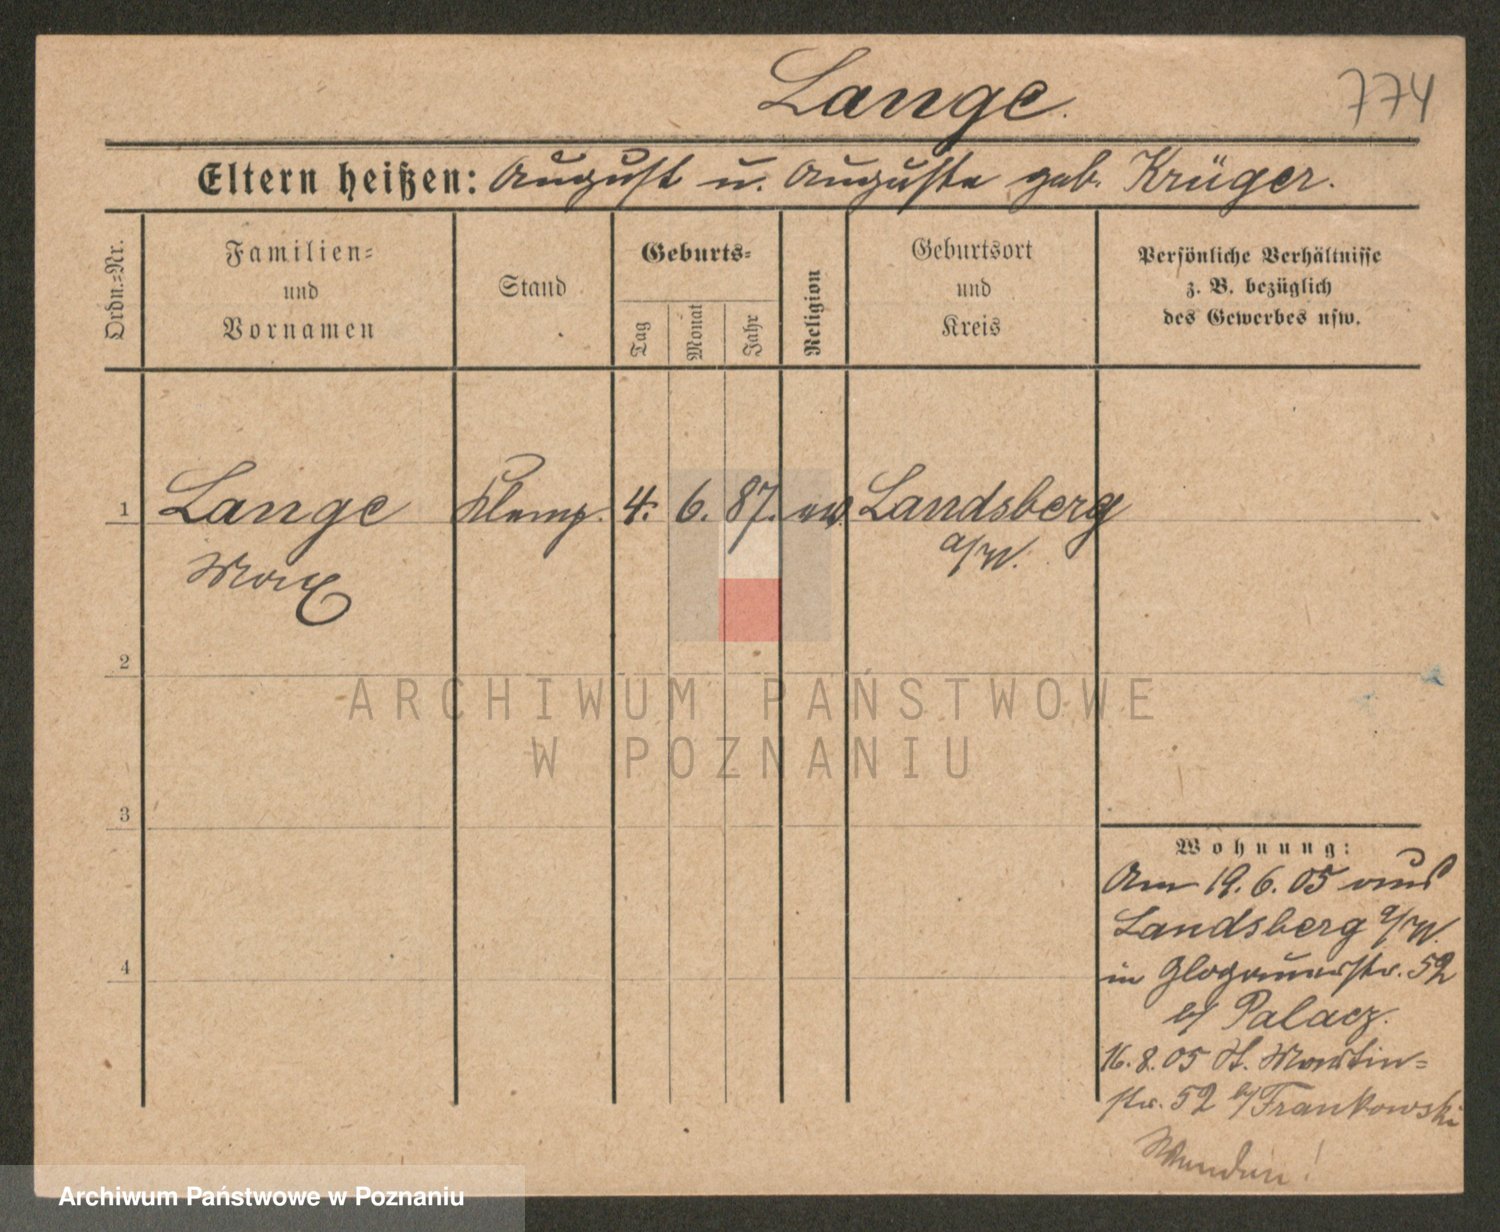 Lange.
774
Eltern heißen: August u. Auguste geb. Krüger.
Ordn.-Nr.
Familien-
und
Vornamen
Stand
Geburts-
Tag
Monat
Jahr
Religion
Geburtsort
und
Kreis
Persönliche Verhältnisse
z. B. bezüglich
des Gewerbes usw.
1
Lange
Klemp.
4.
6.
87.
ev.
Landsberg
a/W.
Max
2
ARCHIWUM PAŃSTWOWE
W POZNANIU
3
4
Wohnung:
Am 19.6.05 aus
Landsberg a/W.
in Glogauerstr. 52
b/ Palacz.
16.8.05 St. Martin-
str. 52 b/ Frankowski
Wenden!
Archiwum Państwowe w Poznaniu